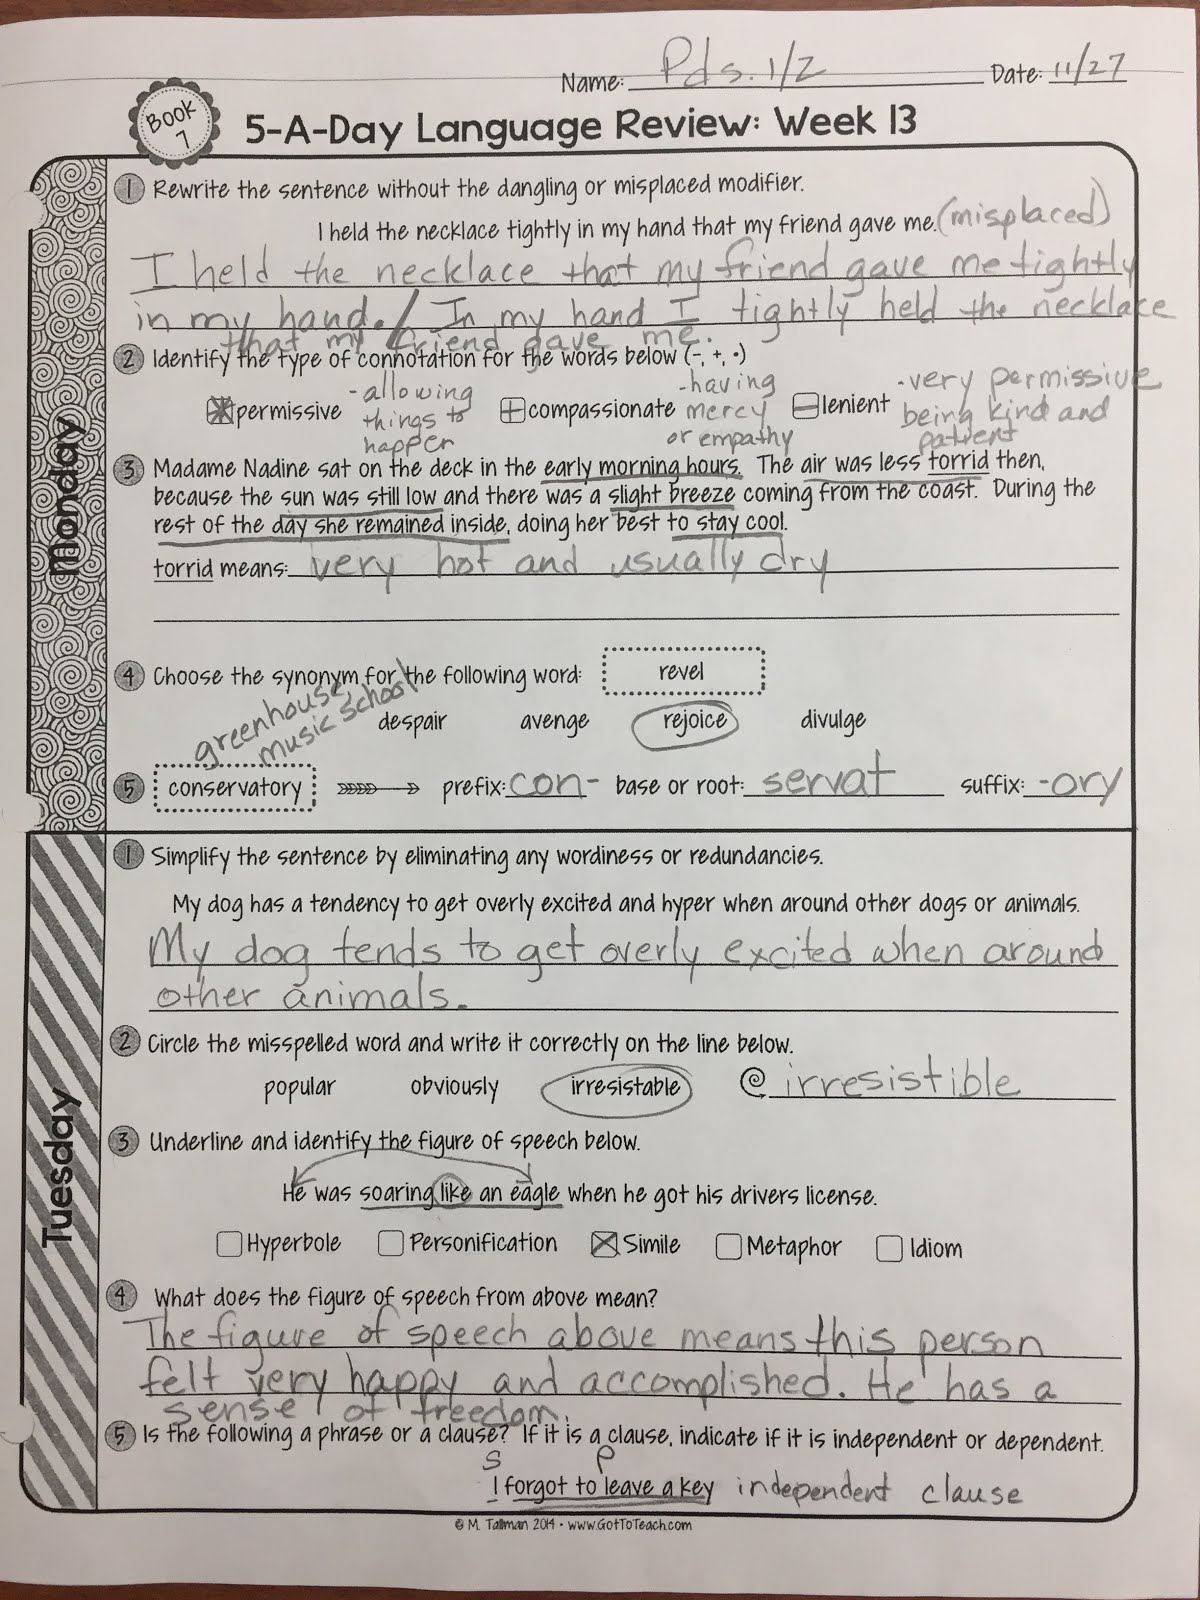 Name: Pds. 1/2 Date: 11/27
Book 7
5-A-Day Language Review: Week 13
Monday
1 Rewrite the sentence without the dangling or misplaced modifier.
I held the necklace tightly in my hand that my friend gave me. (misplaced)
I held the necklace that my friend gave me tightly
in my hand. / In my hand I tightly held the necklace
that my friend gave me.
2 Identify the type of connotation for the words below (-, +, •)
permissive -allowing things to happer + compassionate -having mercy or empathy - lenient -very permissive being kind and patient
3 Madame Nadine sat on the deck in the early morning hours. The air was less torrid then,
because the sun was still low and there was a slight breeze coming from the coast. During the
rest of the day she remained inside, doing her best to stay cool.
torrid means: very hot and usually dry
4 Choose the synonym for the following word: revel
despair avenge rejoice divulge
greenhouse,
music school
5 conservatory prefix: con- base or root: servat suffix: -ory
Tuesday
1 Simplify the sentence by eliminating any wordiness or redundancies.
My dog has a tendency to get overly excited and hyper when around other dogs or animals.
My dog tends to get overly excited when around
other animals.
2 Circle the misspelled word and write it correctly on the line below.
popular obviously irresistable irresistible
3 Underline and identify the figure of speech below.
He was soaring like an eagle when he got his drivers license.
Hyperbole Personification Simile Metaphor Idiom
4 What does the figure of speech from above mean?
The figure of speech above means this person
felt very happy and accomplished. He has a
sense of freedom.
5 Is the following a phrase or a clause? If it is a clause, indicate if it is independent or dependent.
S P
I forgot to leave a key independent clause
© M. Tallman 2014 • www.GotToTeach.com